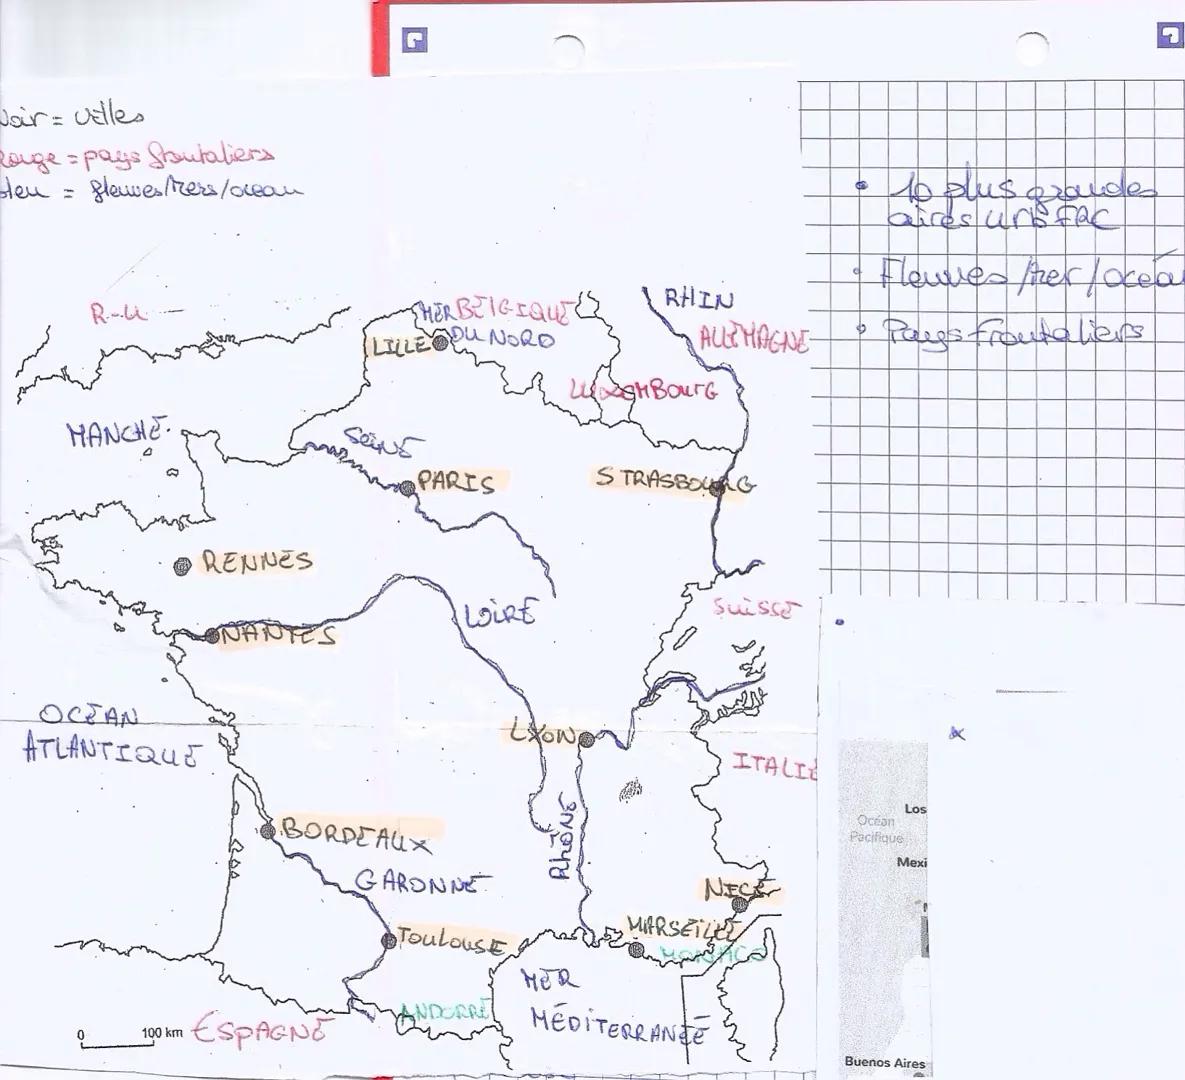 Noir = villes
Rouge = pays frontaliers
Bleu = fleuves/mers/océan
• 10 plus grandes
aires urb FRC
• Fleuves/mer/océan
• Pays frontaliers
R-U
MER DU NORD
BELGIQUE
RHIN
ALLEMAGNE
LILLE
LUXEMBOURG
MANCHE
SEINE
PARIS
STRASBOURG
RENNES
LOIRE
SUISSE
NANTES
OCÉAN
ATLANTIQUE
LYON
ITALIE
RHÔNE
BORDEAUX
GARONNE
NICE
MARSEILLE
TOULOUSE
MONACO
MER
MÉDITERRANÉE
ANDORRE
ESPAGNE
0 100 km
Océan
Pacifique
Los
Mexi
Buenos Aires